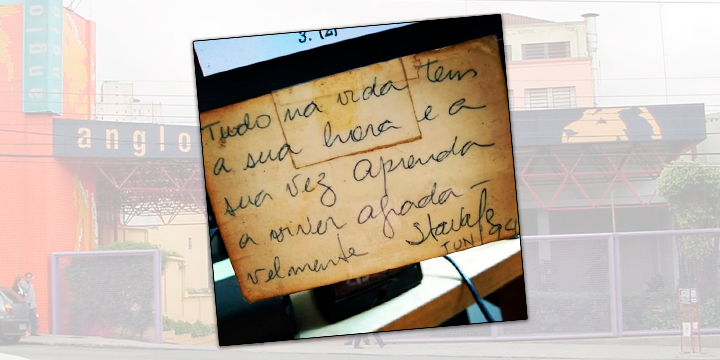 3. (2)
anglo
anglo
Tudo na vida tem
a sua hora e a
sua vez aprenda
a viver agrada-
velmente
JUN/94